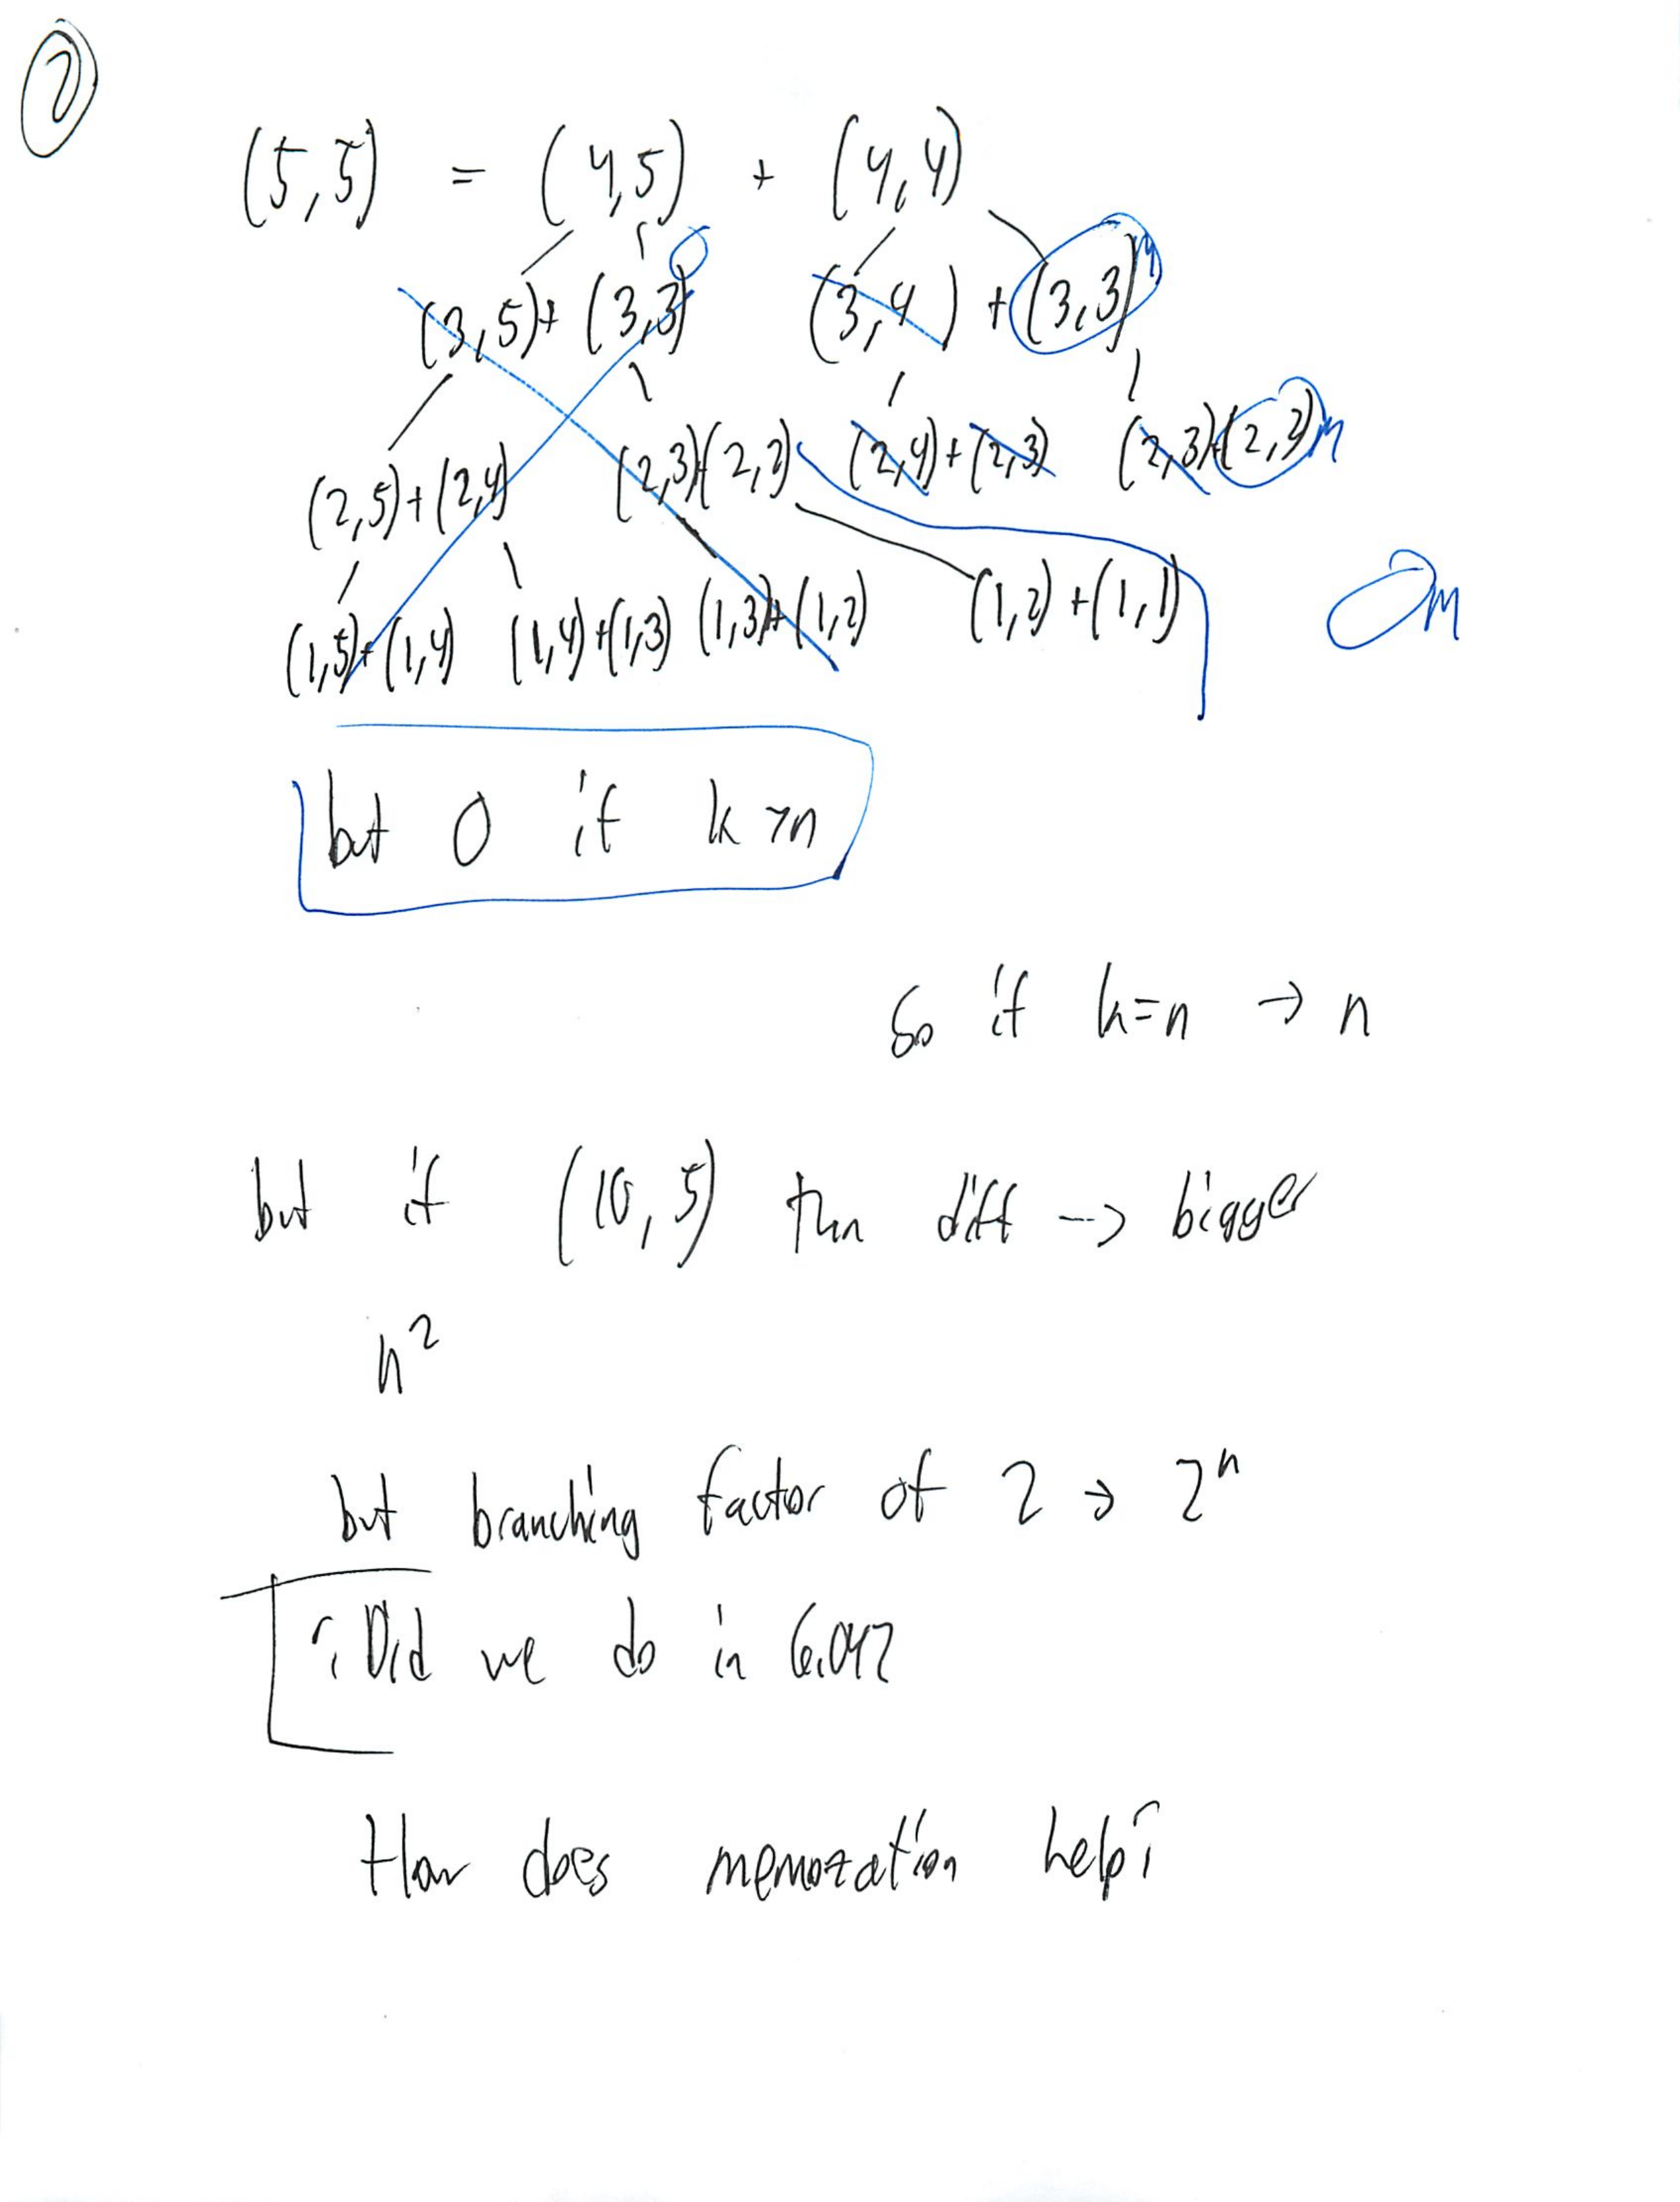 2
(5,5) = (4,5) + (4,4)
(3,5)+(3,3) 0 (3,4) + (3,3) n
(2,5)+(2,4) (2,3)(2,2) (2,4)+(2,3) (2,3)(2,2) n
(1,5)+(1,4) (1,4)+(1,3) (1,3)+(1,2) (1,2)+(1,1) On
but 0 if k>n
So if k=n → n
but if (10,5) then diff --> bigger
n²
but branching factor of 2 → 2ⁿ
¿ Did we do in 6.042
How does memozation help?